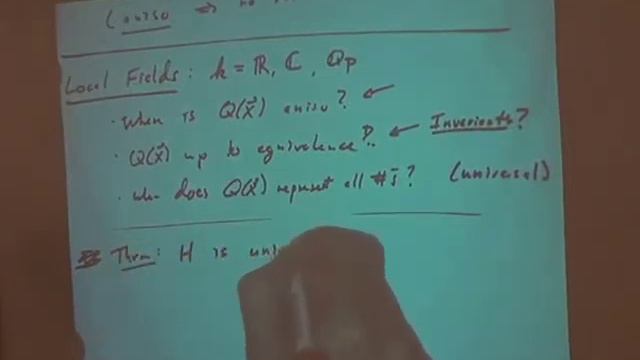 Local Fields: k = ℝ, ℂ, ℚp
· When is Q(x⃗) aniso? ←
· Q(x⃗) up to equivalence? ← Invariants?
· When does Q(x⃗) represent all #'s? (universal)
Thm: H is uni